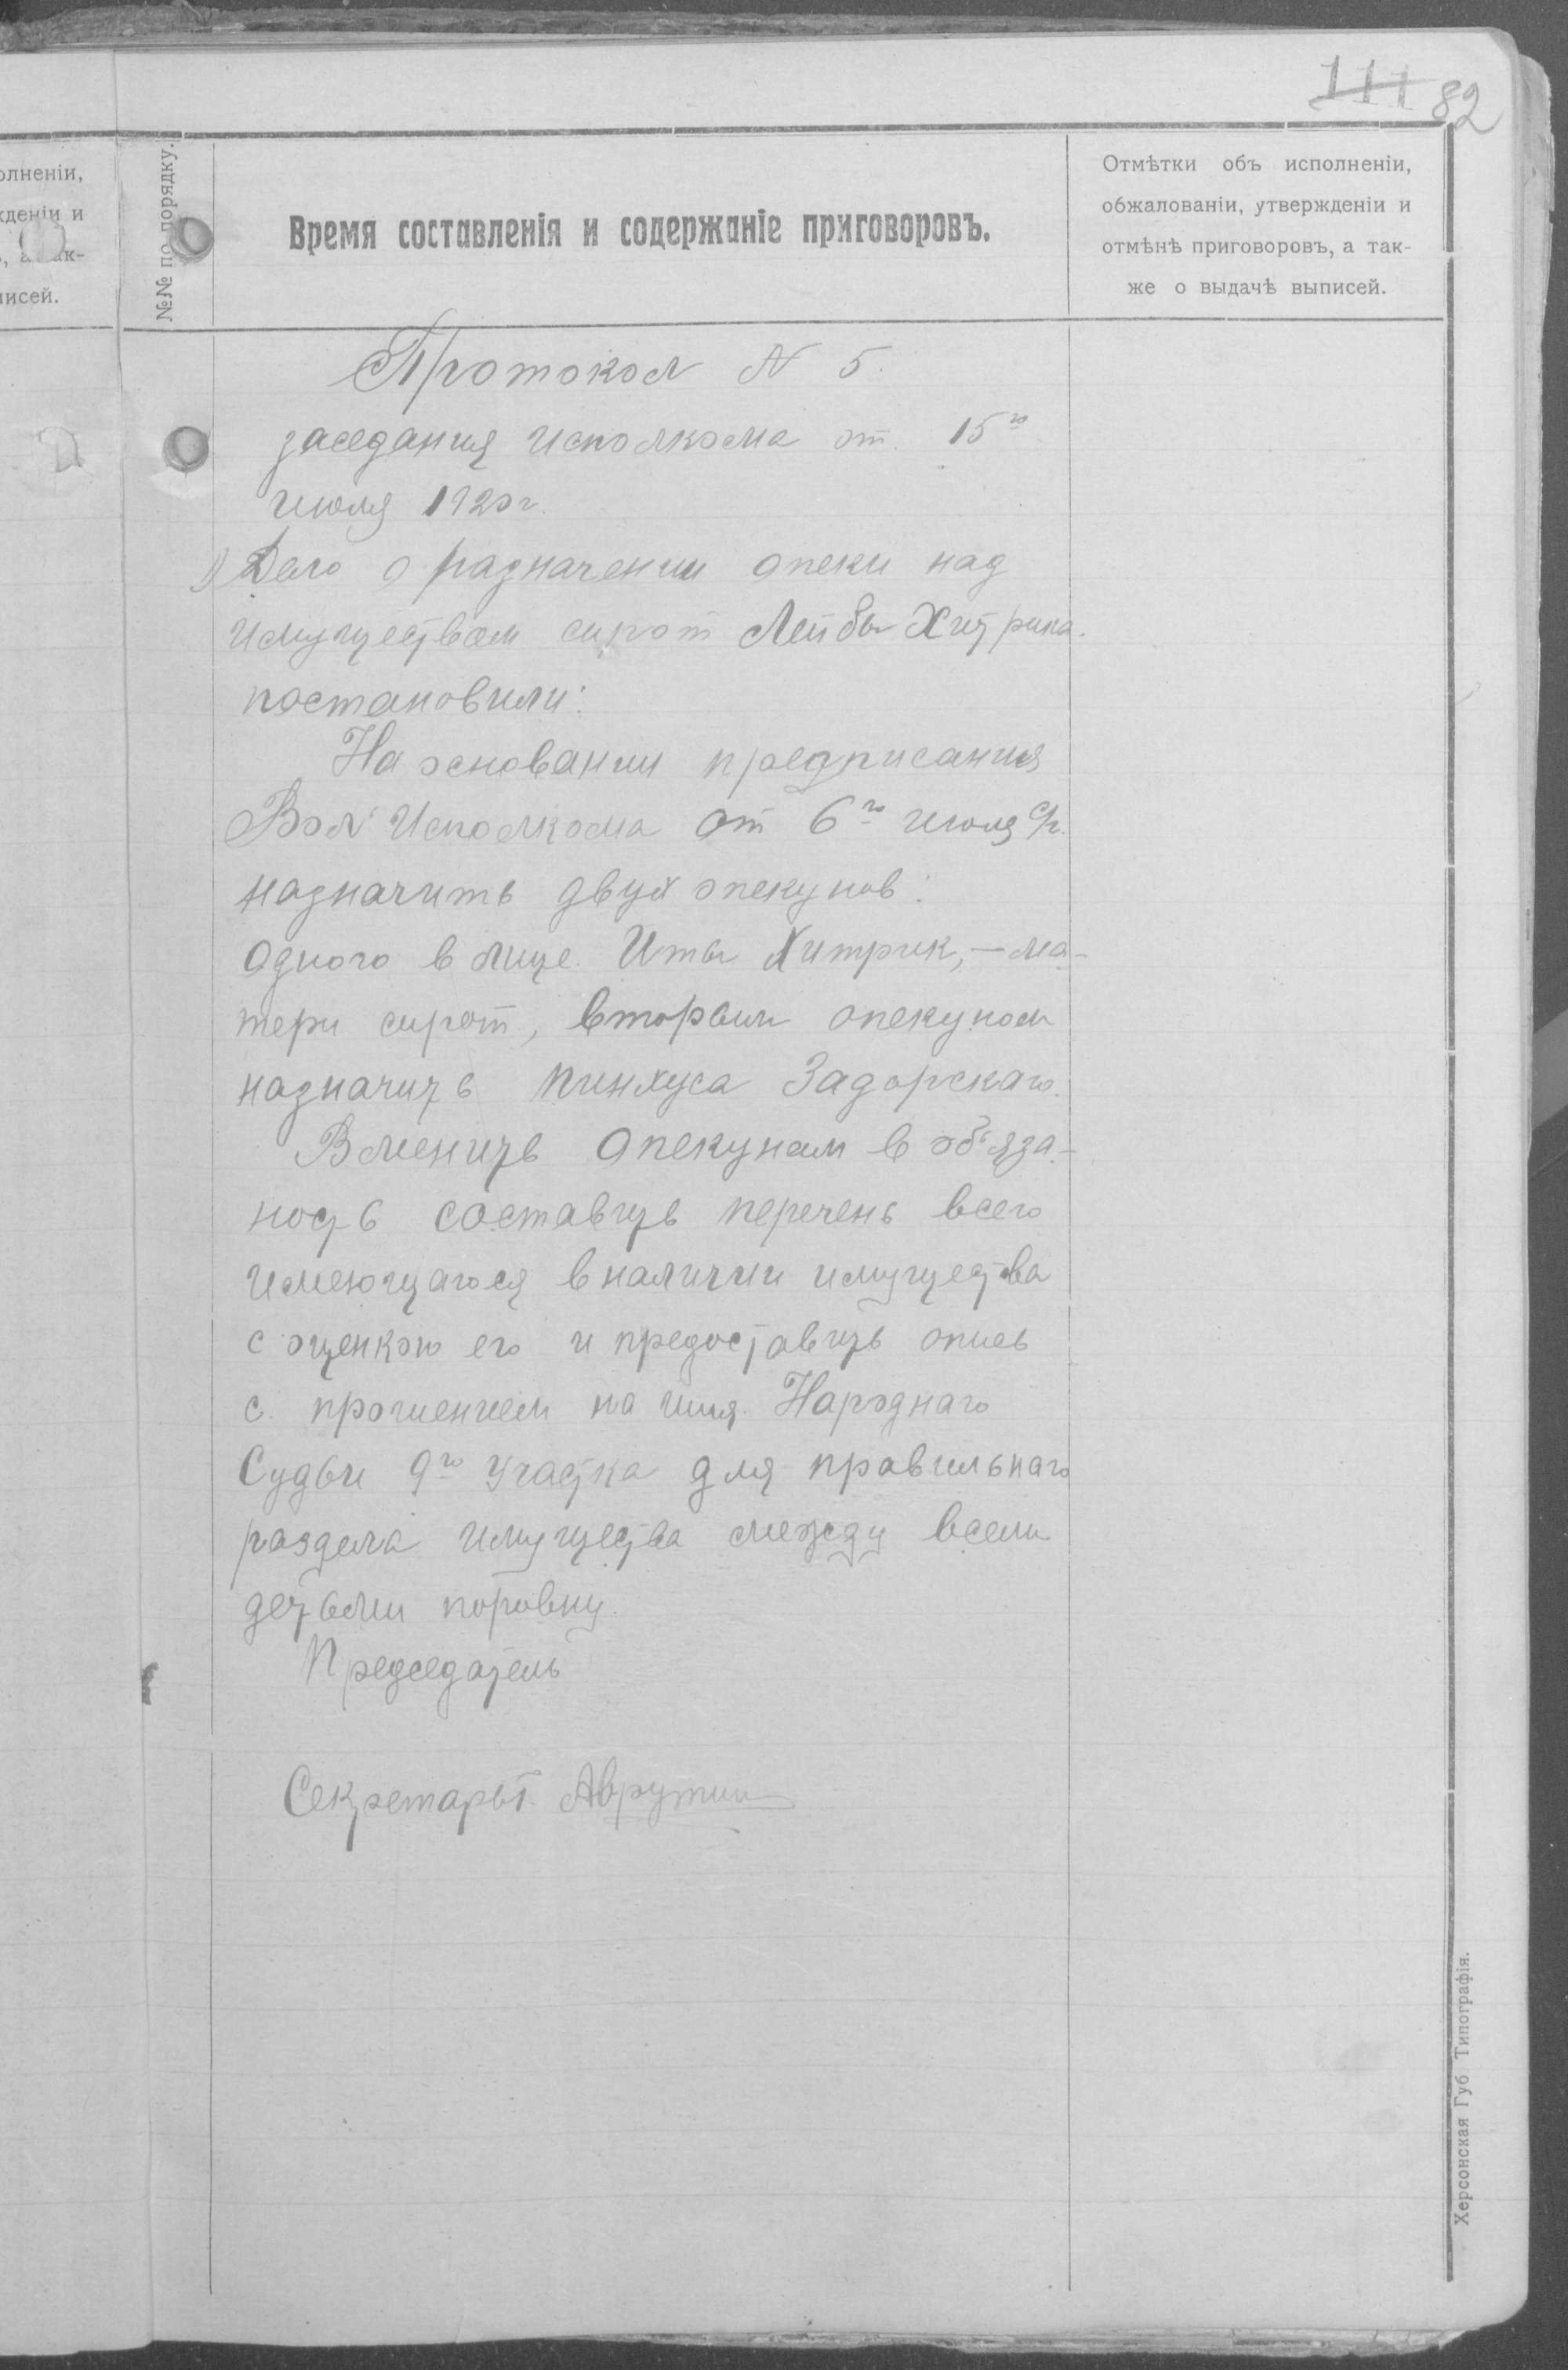 111 82
олненіи,
жденіи и
ак-
писей.
№№ по порядку.
Время составленія и содержаніе приговоровъ.
Отмѣтки объ исполненіи,
обжалованіи, утвержденіи и
отмѣнѣ приговоровъ, а так-
же о выдачѣ выписей.
Протокол N 5.
заседания исполкома от 15го
июля 1920 г.
1) Дело о назначении опеки над
имуществом сирот Лейбы Хитрика.
постановили:
На основании предписания
Вол Исполкома от 6го июля с/г.
назначить двух опекунов:
одного в лице Иты Хитрик, — ма-
тери сирот, вторым опекуном
назначить Пинхуса Задорскаго.
Вменить опекунам в об'яза-
ность составить перечень всего
имеющагося в наличии имущества
с оценкою его и предоставить опись
с прошением на имя Народнаго
Судьи 9го участка для правильнаго
раздела имущества между всеми
детьми поровну.
Председатель
Секретарь Аврутин
Херсонская Губ Типографія.